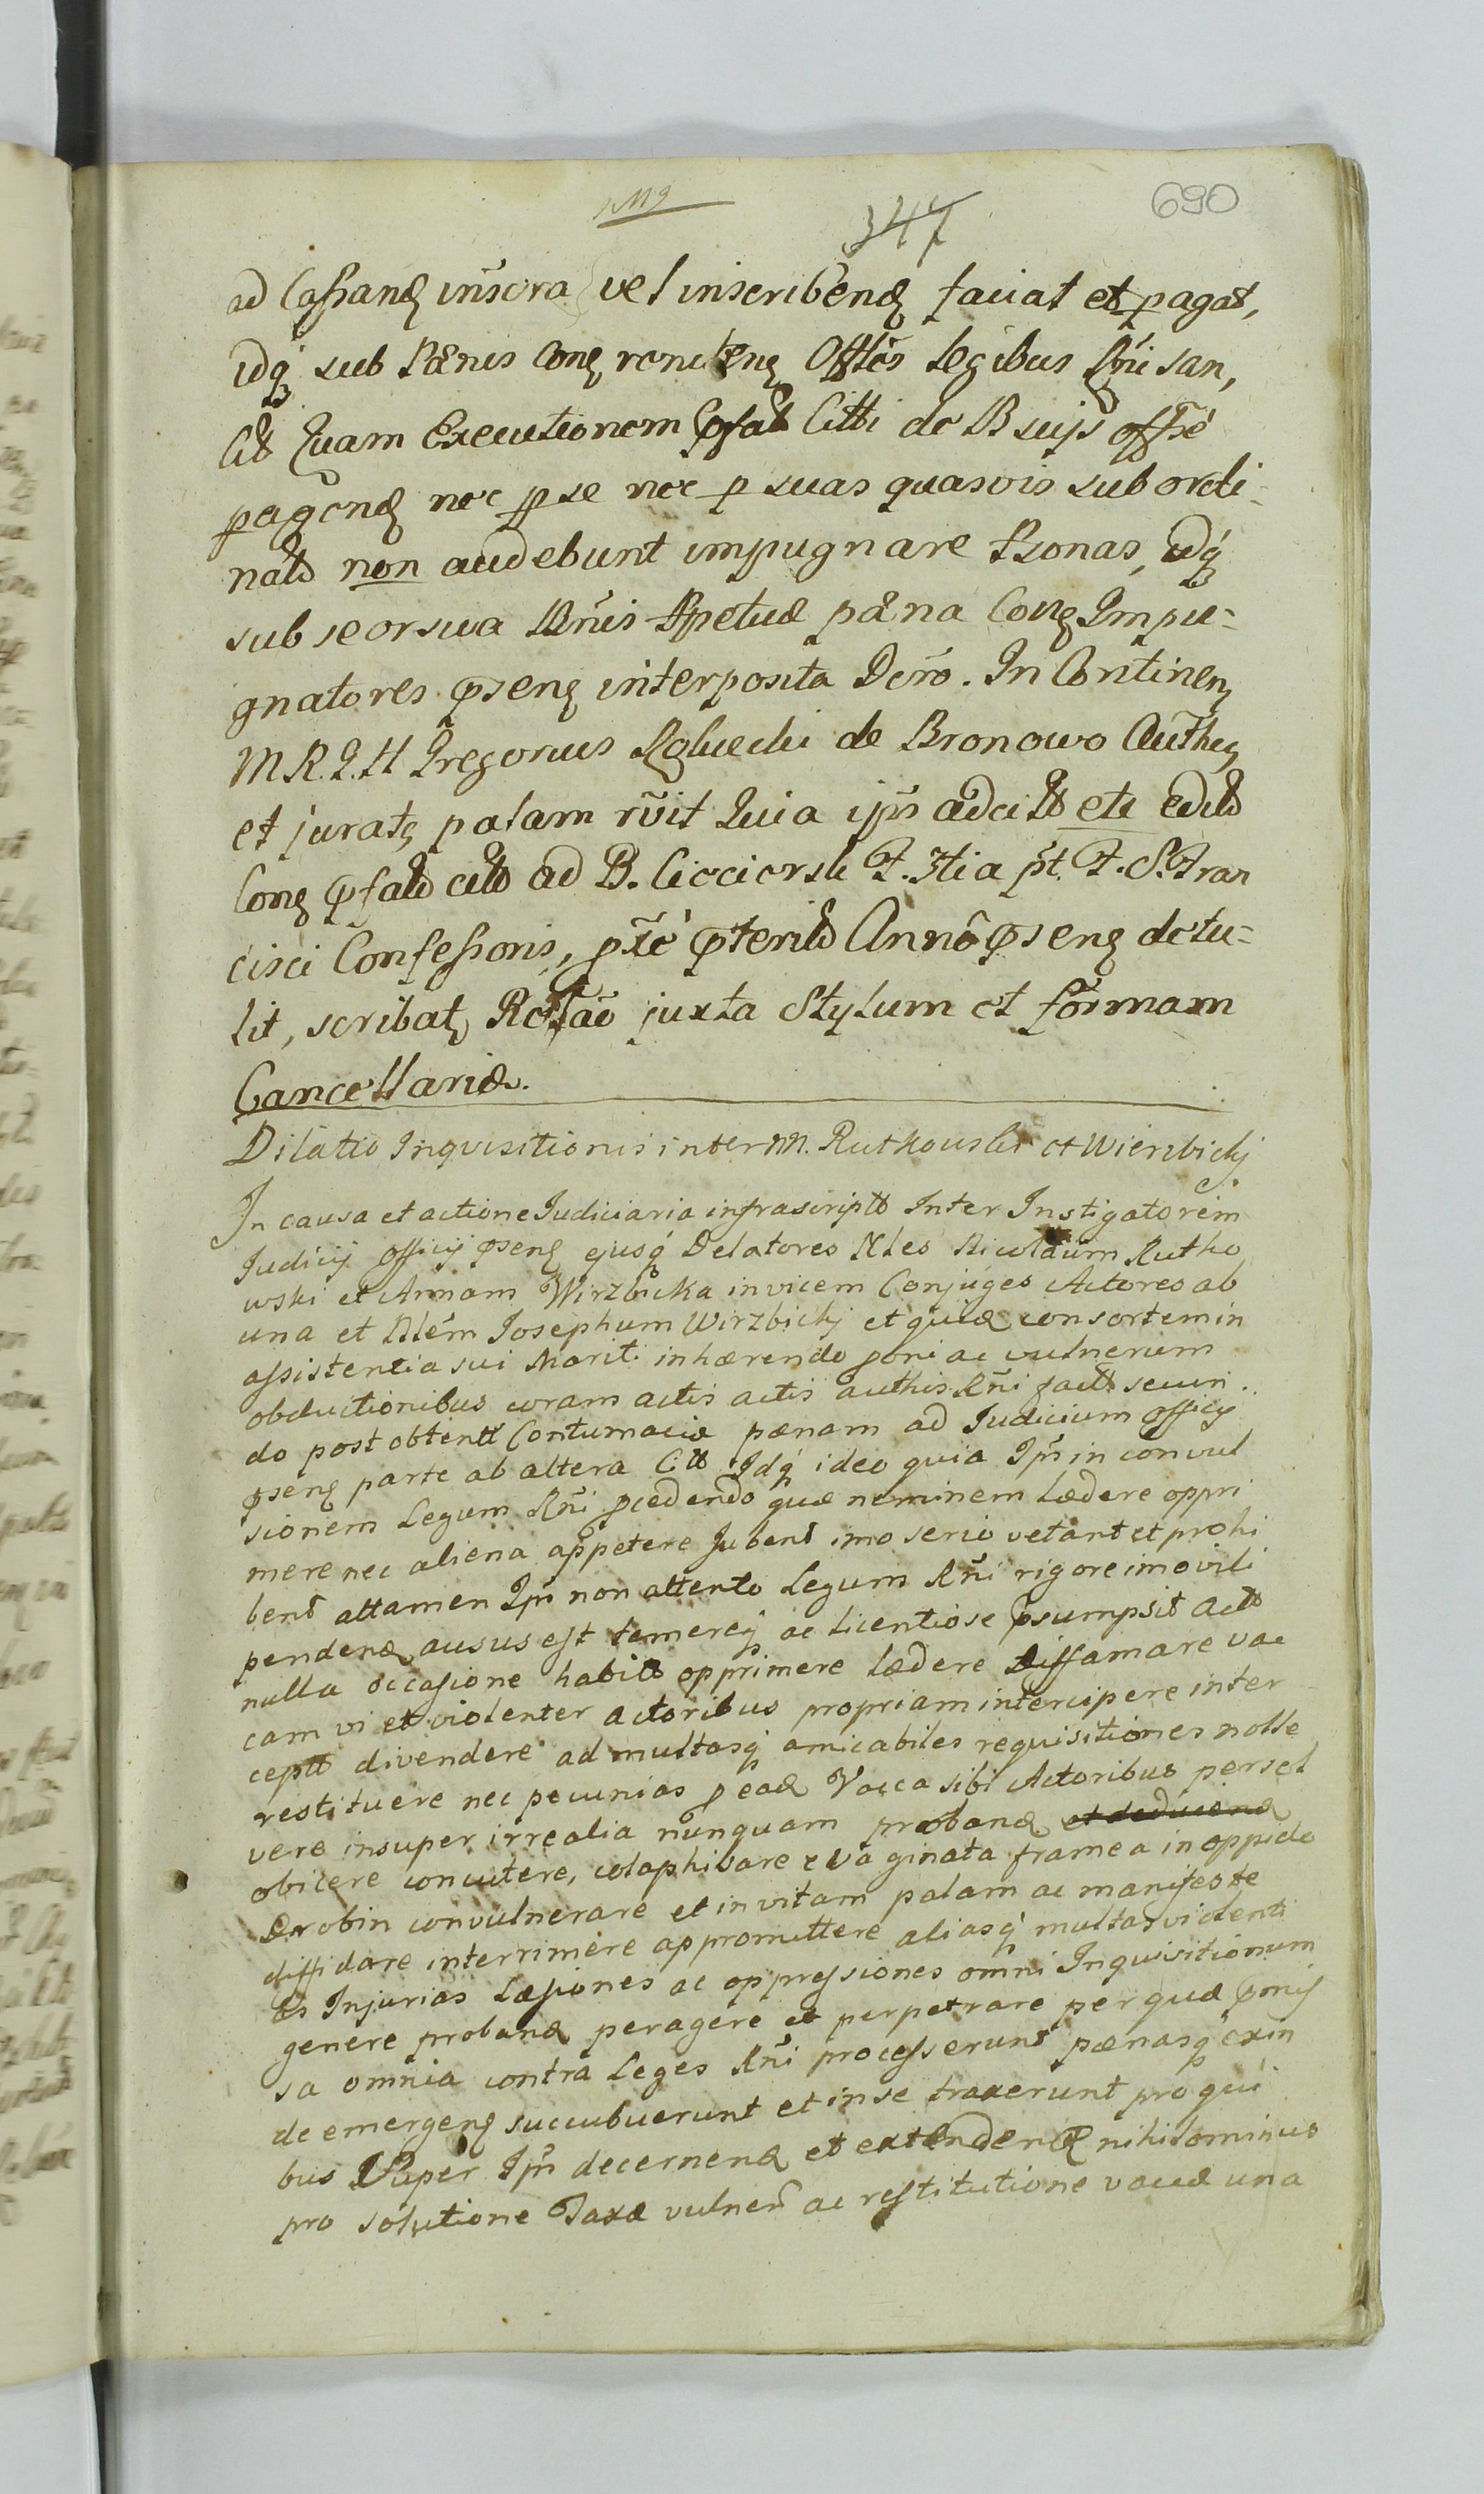 1119
347
690
ad Cassand inscra vel inscribend faciat et pagat,
idq sub Pænis Conq Offłes legibus Rñi san,
Citt Quam Executionem Citti de B suijs offse
pagend nec p se nec p suas quasvis subordi-
natas non audebunt impugnare Psonas, idq
sub seorsiva Bñis Ppetuæ pæna Conq Impu-
gnatores pseng interposita Dcño. In Continen
M R. J. H Gregorius de Bronowo Authen
et jurat palam rvit Quia ips adcitt ete
Conq pfato citto ad B. Ciociorsk F. 3tia pt. F. S. Fran
cisci Confessoris, pxe pterito Anno pseng detu-
lit, scribat Reltao juxta Stylum et formam
Cancellariæ.
Dilatio Inquisitionis inter M. Rutkowski et Wierzbickj
In causa et actione Judiciaria infrascriptt Inter Instigatorem
Judicij Officij pseng ejusq Delatores Nles Nicolaum Rutko
wski et Annam Wirzbicka invicem Conjuges Actores ab
una et Nlem Josephum Wirzbickj et consortem in
assistentia sui Mariti inhærendo ac vulnerum
obductionibus coram actis actis authis Rñi factt secun
do post obtentt Contumaciæ pænam ad Judicium Officij
pseng parte ab altera Citt Idq ideo quia Ipñ in convul
sionem Legum Rñi pcedendo quæ neminem lædere oppri
mere nec aliena appetere Jubent imo serio vetant et prohi
bent attamen Ipñ non attento Legum Rñi rigore imo vili
pendend ausus est temereq ac licentiose psumpsit Actt
nulla occasione habitt opprimere lædere Diffamare vac
cam vi et violenter actoribus propriam intercipere inter
ceptt divendere ad multasq amicabiles requisitiones nolle
restituere nec pecunias p ead Vacca sibi Actoribus persol
vere insuper irrealia nunquam proband et deducend
obicere concutere, colaphisare evaginata framea in oppido
Drobin convulnerare et in vitam palam ac manifeste
diffidare interrimere appromittere aliasq multas violenti
as Injurias Læsiones ac oppressiones omni Inquisitionum
genere proband peragere et perpetrare per quæ pmis
sa omnia contra Leges Rñi processerunt pænasq exin
de emergeng succubuerunt et in se traxerunt pro qui
bus super Ipñ decernend et extendend nihilominus
pro solutione Taxæ vulner ac restitutione vaccæ una